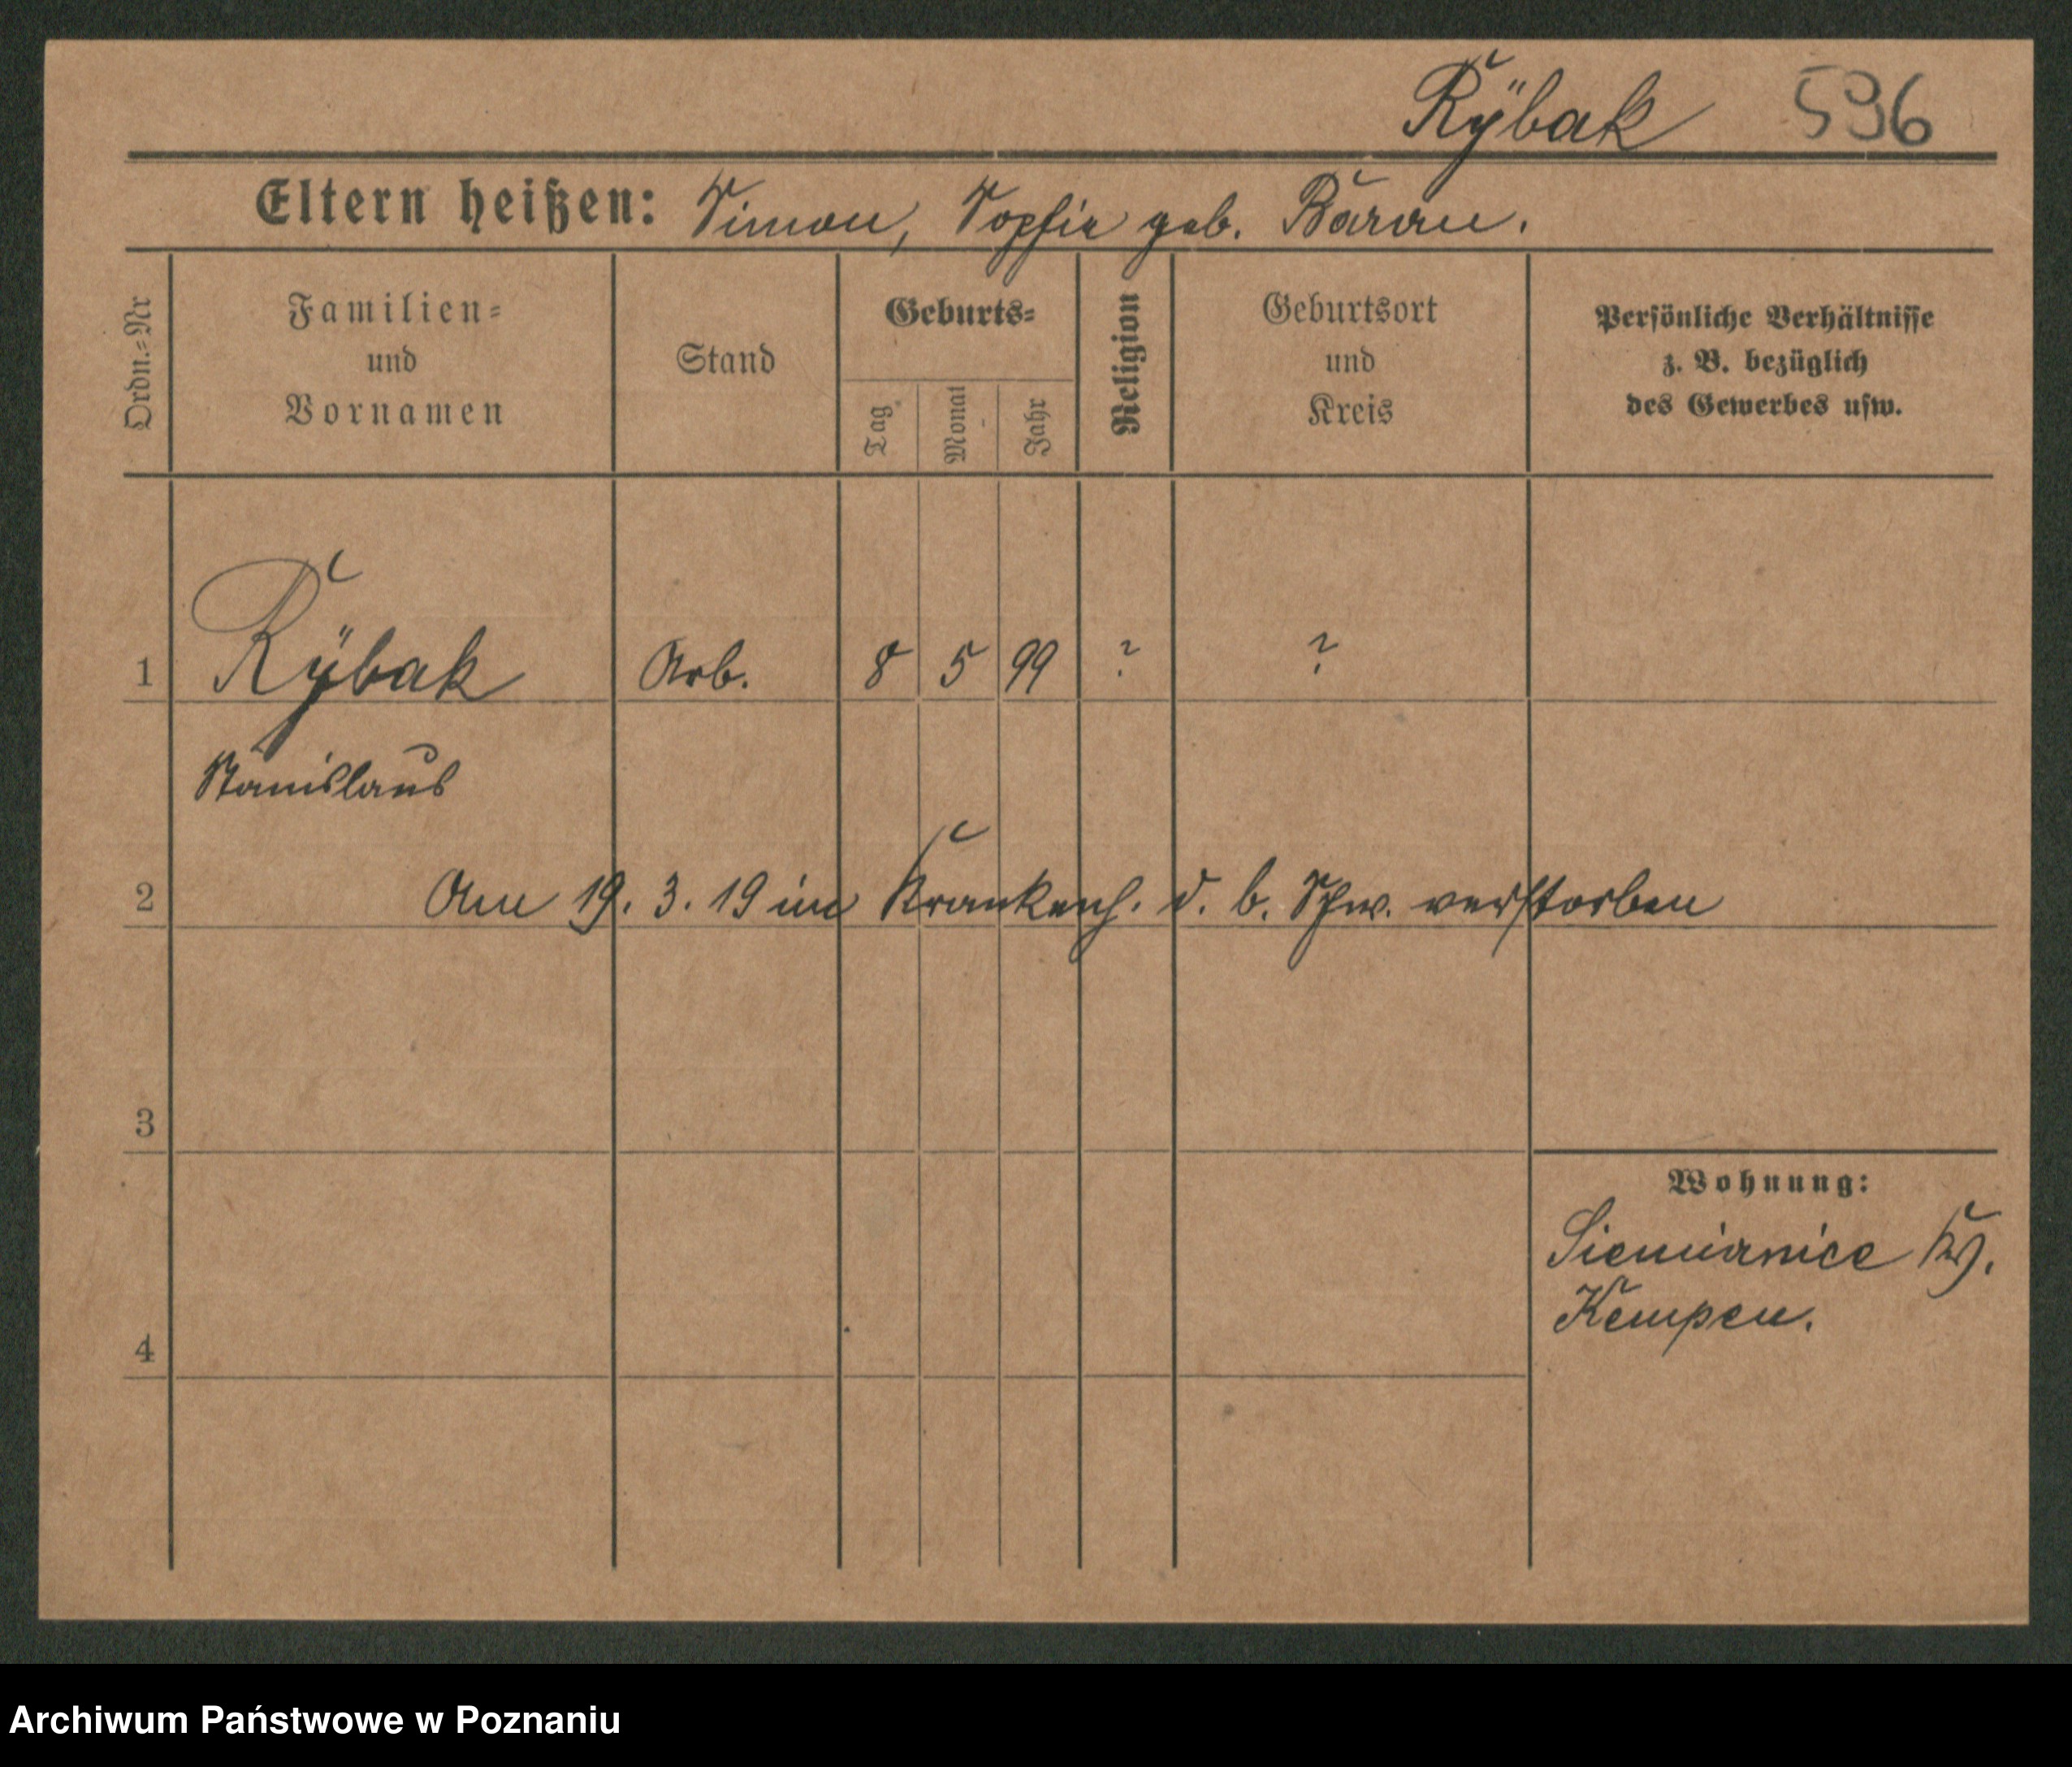 Rÿbak 596
Eltern heißen: Simon, Sophie geb. Baran.
Ordn.-Nr
Familien-
und
Vornamen
Stand
Geburts-
Tag
Monat
Jahr
Religion
Geburtsort
und
Kreis
Persönliche Verhältnisse
z. B. bezüglich
des Gewerbes usw.
1 Rÿbak Arb. 8 5 99 ? ?
Stanislaus
2 Am 19. 3. 19 im Krankenh. d. b. Schw. verstorben
3
Wohnung:
Siemianice Krs.
Kempen.
4
Archiwum Państwowe w Poznaniu